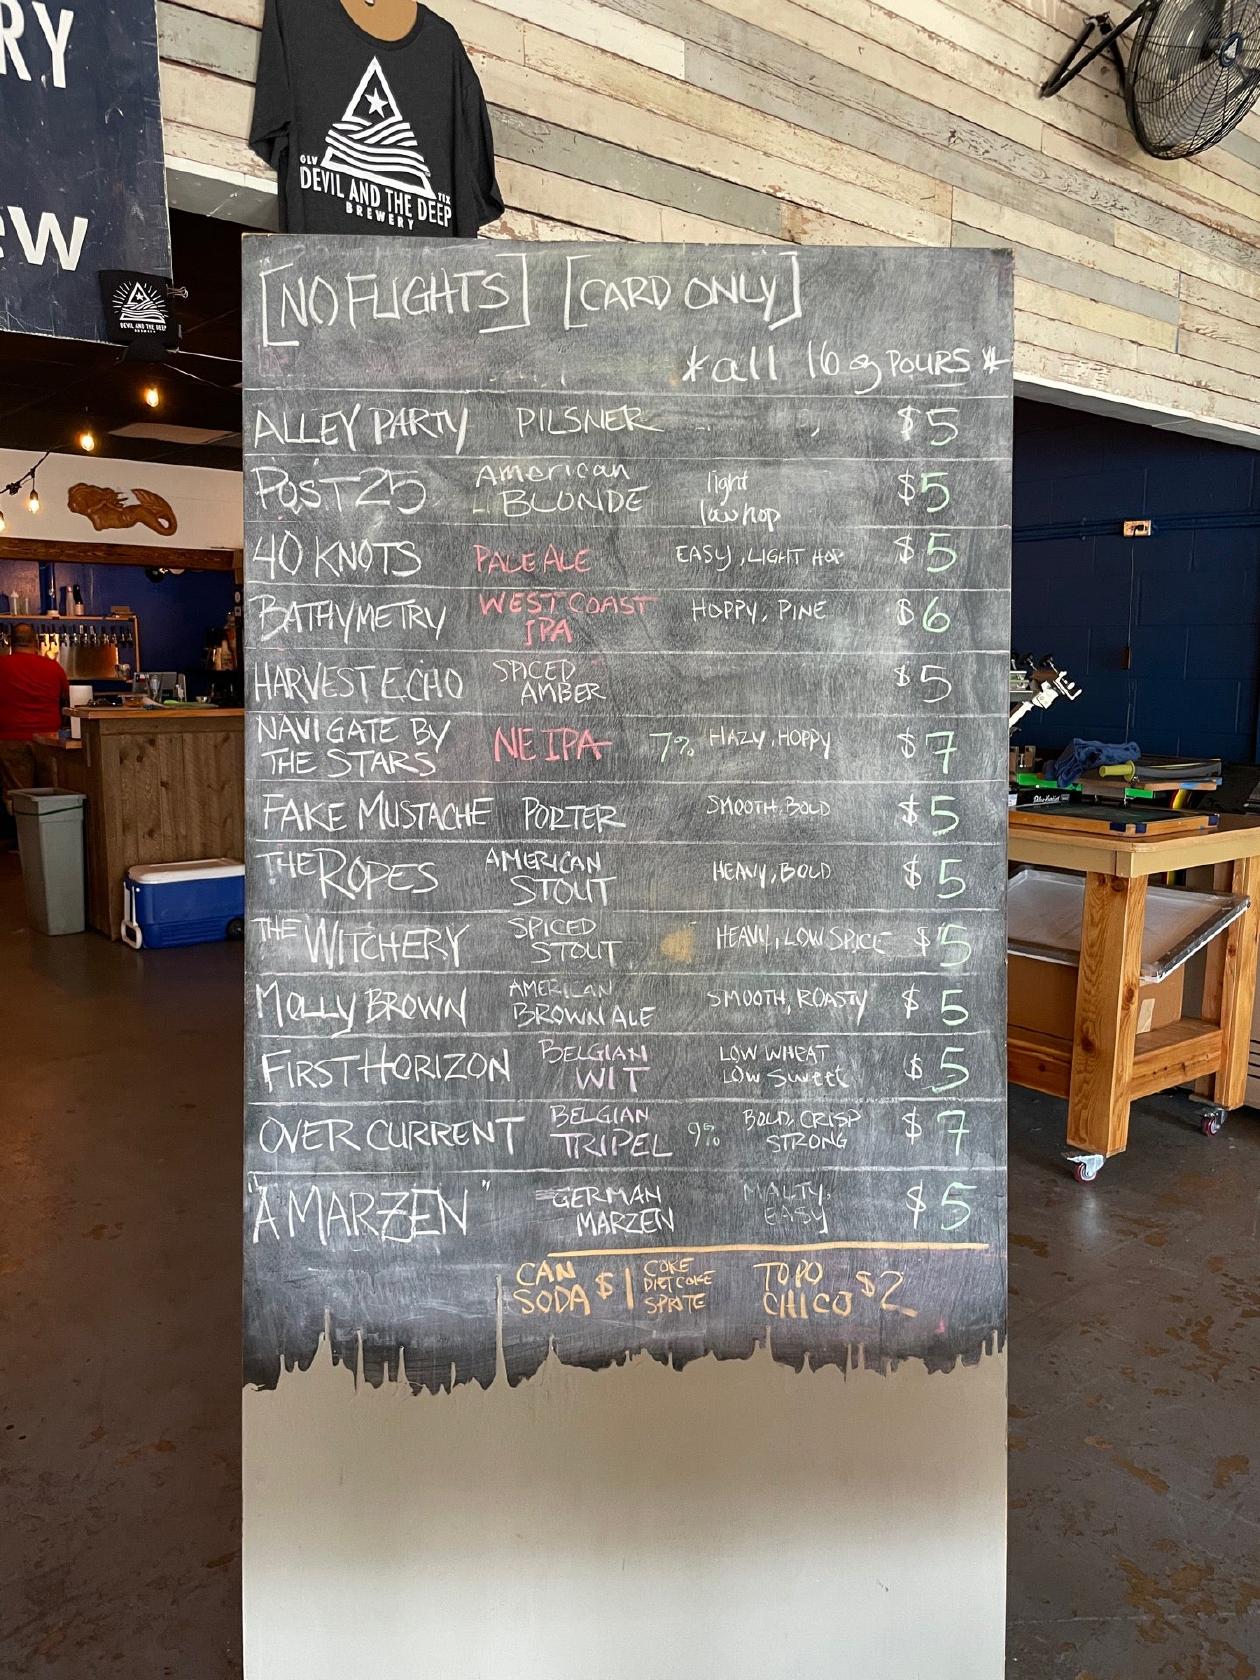 RY
ew
GLV
TEX
DEVIL AND THE DEEP
BREWERY
DEVIL AND THE DEEP
BREWERY
[NO FLIGHTS] [CARD ONLY]
*all 16 oz POURS*
ALLEY PARTY PILSNER $5
POST 25 American BLONDE light low hop $5
40 KNOTS PALE ALE EASY, LIGHT HOP $5
BATHYMETRY WEST COAST IPA HOPPY, PINE $6
HARVEST ECHO SPICED AMBER $5
NAVIGATE BY THE STARS NE IPA 7% HAZY, HOPPY $7
FAKE MUSTACHE PORTER SMOOTH, BOLD $5
THE ROPES AMERICAN STOUT HEAVY, BOLD $5
THE WITCHERY SPICED STOUT HEAVY, LOW SPICE $5
MOLLY BROWN AMERICAN BROWN ALE SMOOTH, ROASTY $5
FIRST HORIZON BELGIAN WIT LOW WHEAT LOW Sweet $5
OVER CURRENT BELGIAN TRIPEL 9% BOLD, CRISP STRONG $7
"A MARZEN" GERMAN MARZEN MALTY, EASY $5
CAN SODA $1 COKE DIET COKE SPRITE TOPO CHICO $2